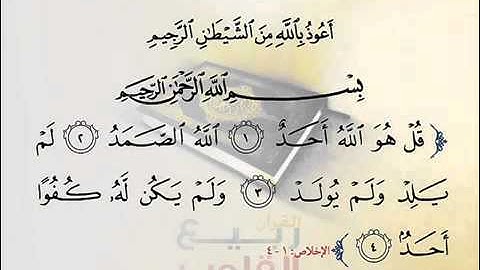 أَعُوذُ بِاللَّهِ مِنَ الشَّيْطَانِ الرَّجِيمِ
بِسْمِ اللَّهِ الرَّحْمَٰنِ الرَّحِيمِ
﴿ قُلْ هُوَ اللَّهُ أَحَدٌ ١ اللَّهُ الصَّمَدُ ٢ لَمْ
يَلِدْ وَلَمْ يُولَدْ ٣ وَلَمْ يَكُن لَّهُۥ كُفُوًا
أَحَدٌۢ ٤ ﴾ الإخلاص: ١-٤
القرآن
ربيع
القلوب